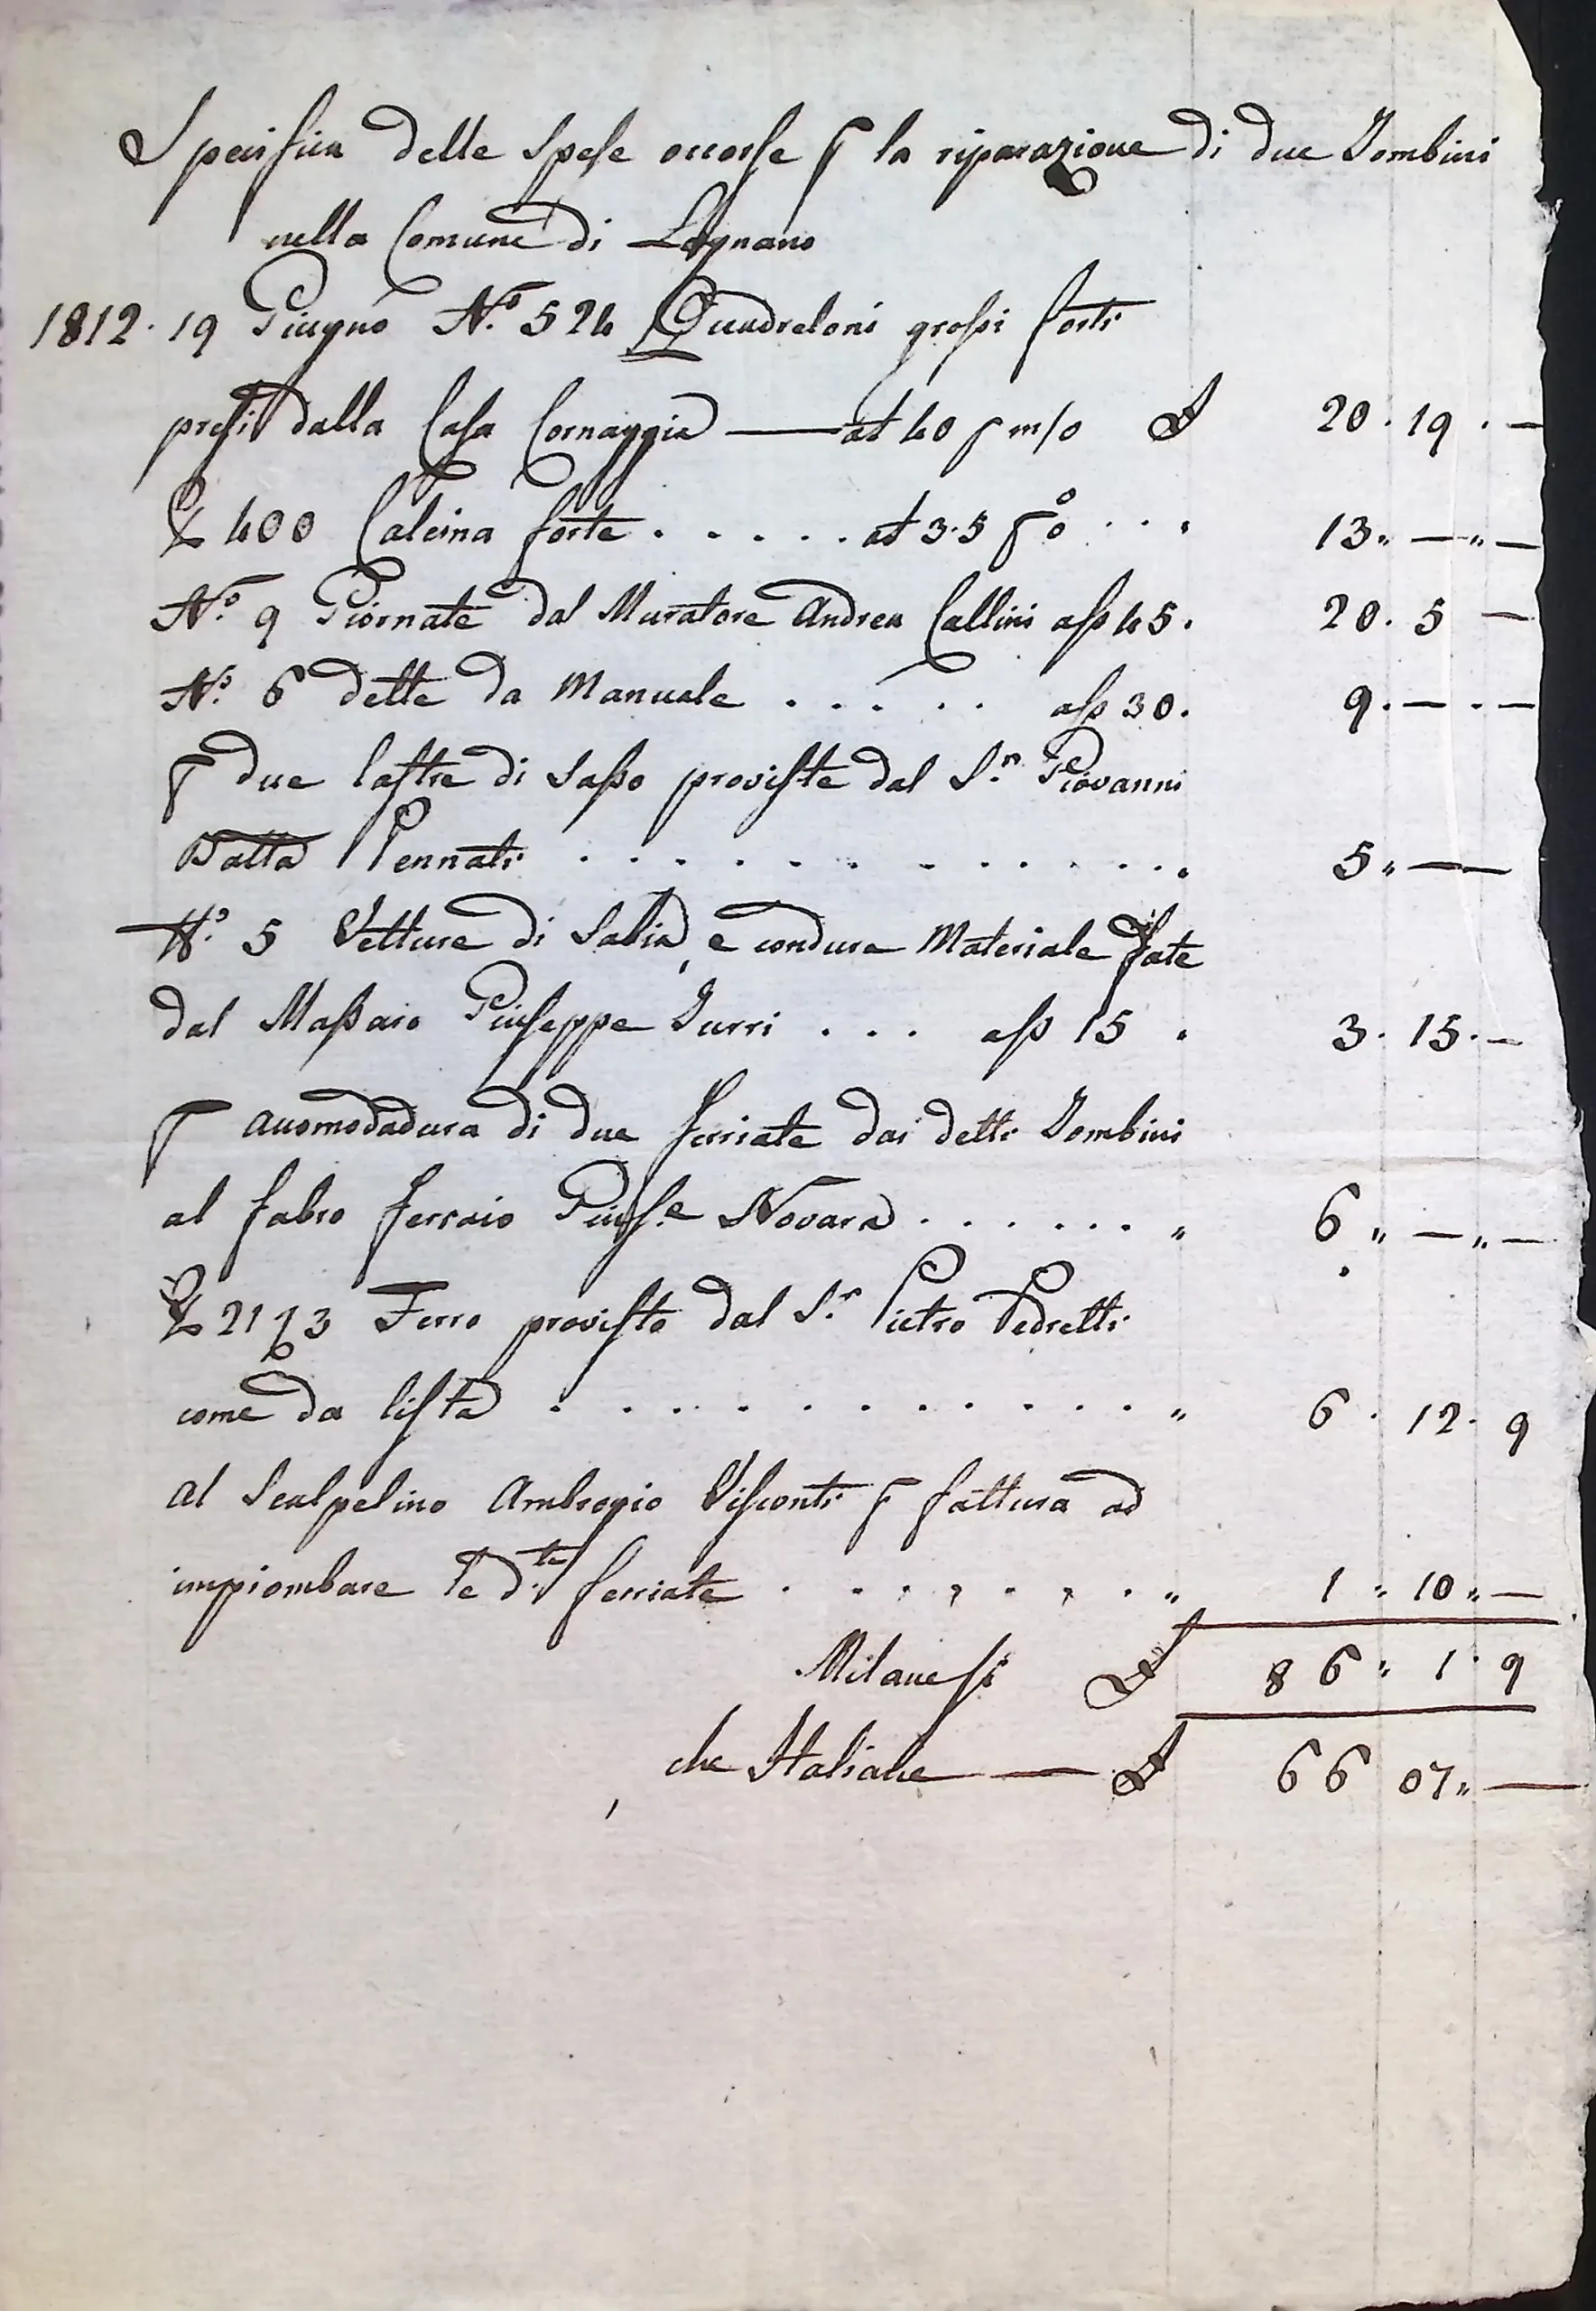 Specifica delle Spese occorse p la riparazione di due Tombini
nella Comune di Legnano
1812. 19 Giugno N.º 524 Quadreloni grossi forti
presi dalla Casa Cornaggia — at 40 p m/o £ 20. 19. —
℔ 400 Calcina forte . . . . . at 3.5 p º/o . . . 13. — " —
N.º 9 Giornate dal Muratore Andrea Callini a ss 45. 20. 5 —
N.º 6 dette da Manuale . . . . . . a ss 30. 9. — . —
p due lastre di Sasso proviste dal S.r Giovanni
Batta Pennati . . . . . . . . . . . . 5 " —
N.º 5 Vetture di Sabia, e condure Materiale fate
dal Massaro Giuseppe Turri . . . a ss 15 . 3. 15. —
p acomodadura di due ferriate dai detti Tombini
al fabro ferraio Gius.e Novara . . . . . . " 6 " — " —
℔ 21 Ʒ 3 Ferro provisto dal S.r Pietro Pedretti
come da lista . . . . . . . . . . . . " 6. 12. 9
Al Scalpelino Ambrogio Visconti p fattura ad
impiombare le d.te ferriate . . . . . . . . " 1 " 10 " —
Milanesi £ 86 " 1. 9
che Italiane — £ 66 07 " —